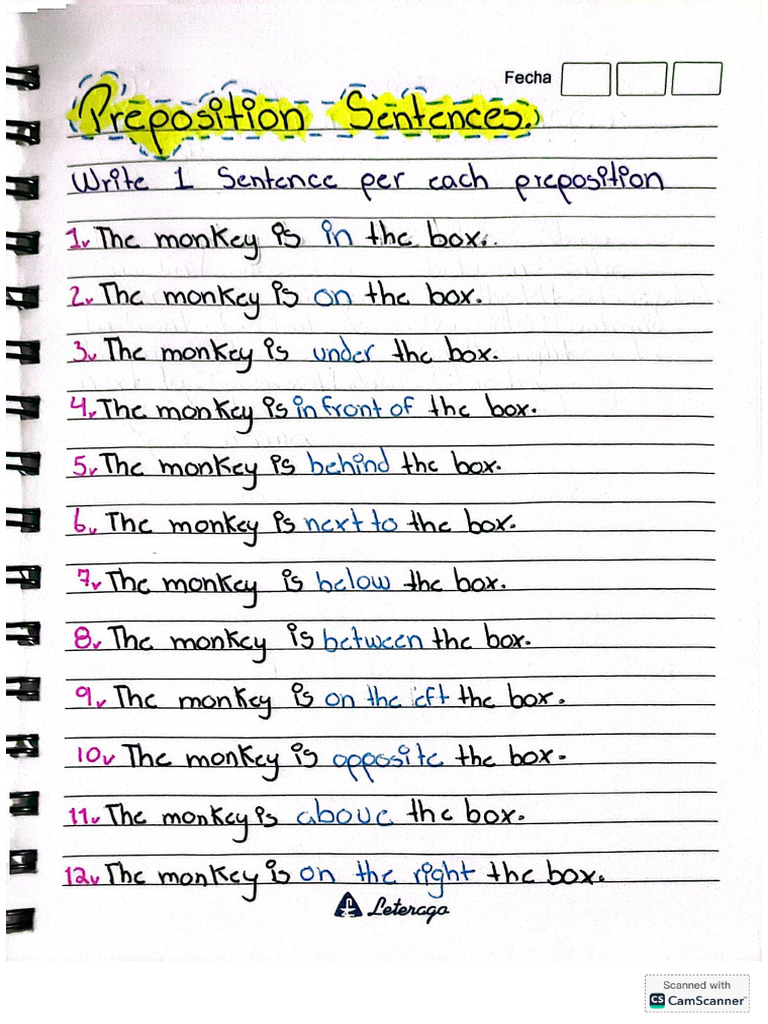 Fecha
Preposition Sentences.
Write 1 Sentence per each preposition
1. The monkey is in the box.
2. The monkey is on the box.
3. The monkey is under the box.
4. The monkey is in front of the box.
5. The monkey is behind the box.
6. The monkey is next to the box.
7. The monkey is below the box.
8. The monkey is between the box.
9. The monkey is on the left the box.
10. The monkey is opposite the box.
11. The monkey is above the box.
12. The monkey is on the right the box.
Leterago
Scanned with
CS CamScanner